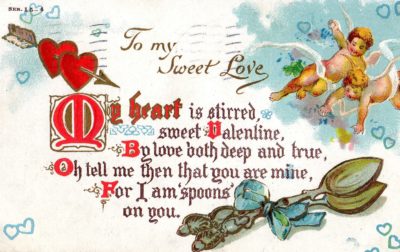 SER. 15 - 4
To my
Sweet Love
My heart is stirred,
sweet Valentine,
By love both deep and true,
Oh tell me then that you are mine,
For I am 'spoons'
on you.